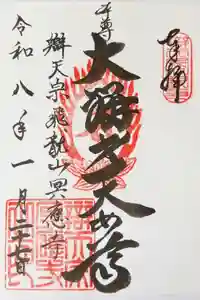 奉拝
本尊
大辯才天女尊
辯天宗飛龍山興應寺
令和八年一月二十七日